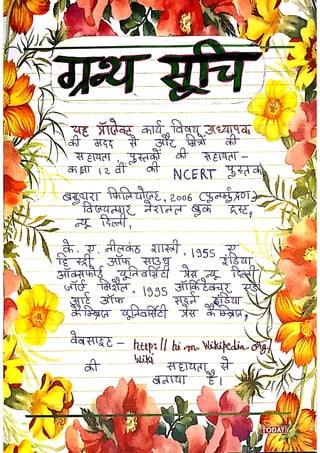 ग्रन्थ सूचि
यह प्रोजेक्ट कार्य विषय अध्यापक
की मदद से और मित्रों की
सहायता पुस्तकों की सहायता -
कक्षा 12 वी की NCERT पुस्तक
फिलियोजट, 2006 (पुनर्मुद्रण)
विजयनगर नेशनल बुक ट्रस्ट,
न्यू दिल्ली,
के. ए. नीलकंठ शास्त्री, 1955 ए
हिस्ट्री ऑफ साउथ इंडिया
ऑक्सफोर्ड यूनिवर्सिटी प्रेस न्यू दिल्ली
जॉर्ज मिशेल, 1995 आर्किटेक्चर एंड
आर्ट ऑफ सदर्न इंडिया
कैम्ब्रिज यूनिवर्सिटी प्रेस कैम्ब्रिज,
वेबसाइट - https://hi.m.Wikipedia.org/
Wiki
की सहायता से
बनाया है।
TODAY